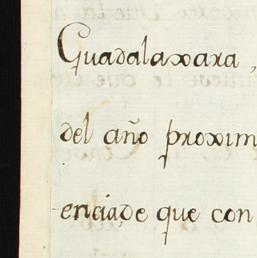 Guadalaxara,
del año proxim
enciade que con